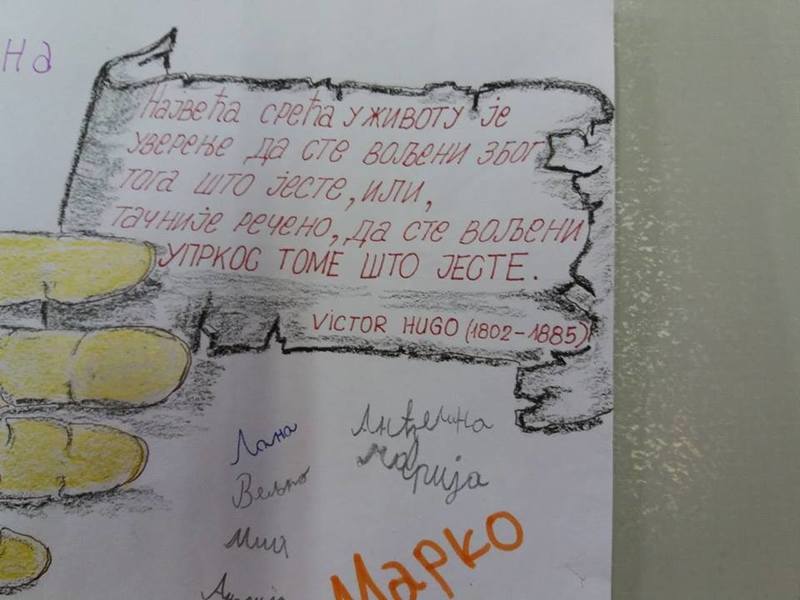 на
Највећа срећа у животу је
уверење да сте вољени због
тога што јесте, или,
тачније речено, да сте вољени
УПРКОС ТОМЕ ШТО ЈЕСТЕ.
VICTOR HUGO (1802-1885)
Лана
Анђелина
Марија
Вељко
Миа
Марко